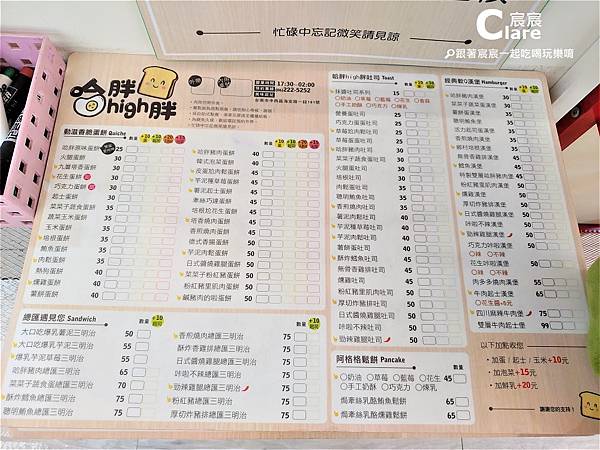 忙碌中忘記微笑請見諒
C宸宸
lare
跟著宸宸一起吃喝玩樂唷
哈胖
high胖
17:30~02:00
222-5252
動滋香脆蛋餅 Quiche
數量
哈胖原味蛋餅 25
火腿蛋餅 30
九層塔香蛋餅 30
花生蛋餅 30
巧克力蛋餅 30
起士蛋餅 35
菜菜子蔬食蛋餅 35
蔬菜玉米蛋餅 35
玉米蛋餅 35
培根蛋餅 35
鮪魚蛋餅 35
肉鬆蛋餅 35
熱狗蛋餅 40
燻雞蛋餅 40
薯餅蛋餅 40
哈胖豬肉蛋餅 40
韓式泡菜蛋餅 40
皮蛋尬肉鬆蛋餅 45
芋泥種草莓蛋餅 45
薯泥起士蛋餅 45
牽絲巧達蛋餅 45
培根尬花生蛋餅 45
塔香燒肉蛋餅 45
香煎燒肉蛋餅 45
德式香腸蛋餅 50
芋泥肉鬆蛋餅 50
日式醬燒雞腿蛋餅 50
菜菜子粉紅蛋餅 50
粉紅豬里肌蛋餅 50
鹹豬肉的啦蛋餅 50
總匯遇見您 Sandwich
數量
大口吃爆乳薯泥三明治 50
大口吃爆乳芋泥三明治 55
爆乳芋泥草莓三明治 55
哈胖豬肉總匯三明治 65
菜菜子蔬食總匯三明治 70
酥炸鱈魚總匯三明治 75
聰明鮪魚總匯三明治 75
香煎燒肉總匯三明治 75
酥炸香雞總匯三明治 75
日式醬燒雞腿總匯三明治 75
咔啦不辣總匯三明治 75
勁辣雞腿總匯三明治 75
粉紅豬總匯三明治 75
厚切炸豬排總匯三明治 75
哈胖high胖吐司 Toast
數量
抹醬吐司系列 15
○奶油 ○草莓 ○藍莓 ○花生 ○香蒜
○手工奶酥 ○巧克力 ○煉乳
營養蛋吐司 25
巧克力蛋蛋吐司 25
草莓尬肉鬆吐司 30
哈胖豬肉吐司 30
菜菜子蔬食蛋吐司 30
火腿吐司 30
培根吐司 30
肉鬆吐司 35
聰明鮪魚吐司 35
香煎燒肉吐司 35
薯泥肉鬆吐司 40
芋泥種草莓吐司 40
芋泥肉鬆吐司 40
薯餅蛋吐司 40
酥炸鱈魚吐司 45
無骨香雞排吐司 45
燻雞吐司 45
粉紅豬里肌肉吐司 45
厚切炸豬排吐司 50
日式醬燒雞腿吐司 50
咔啦不辣吐司 50
勁辣雞腿吐司 50
阿格格鬆餅 Pancake
數量
○奶油 ○草莓 ○藍莓 ○花生 45
○手工奶酥 ○巧克力 ○煉乳
焗牽絲乳酪鮪魚鬆餅 65
焗牽絲乳酪燻雞鬆餅 65
經典軟Q漢堡 Hamburger
哈胖豬肉漢堡
菜菜子蔬菜蛋漢堡
薯餅漢堡
聰明鮪魚漢堡
活力起司蛋漢堡
香煎燒肉漢堡
鄉村培根漢堡
無骨香雞排漢堡
鱈魚漢堡
特製雙層哈胖豬肉漢堡
粉紅豬里肌肉漢堡
燻雞漢堡
厚切炸豬排漢堡
日式醬燒雞腿漢堡 50
咔啦不辣漢堡 50
勁辣雞腿漢堡 50
巧克力咔啦漢堡 50
○辣 ○不辣
花生咔啦漢堡 50
○辣 ○不辣
肉多多燒肉漢堡 55
牛肉起士漢堡 65
○花生醬+5元
四川麻辣牛肉堡 75
雙層牛肉起士堡 99
以下加點收您
・加蛋 / 起士 / 玉米+10元
・加泡菜+15元
・加鮮乳+20元
謝謝您的支持!